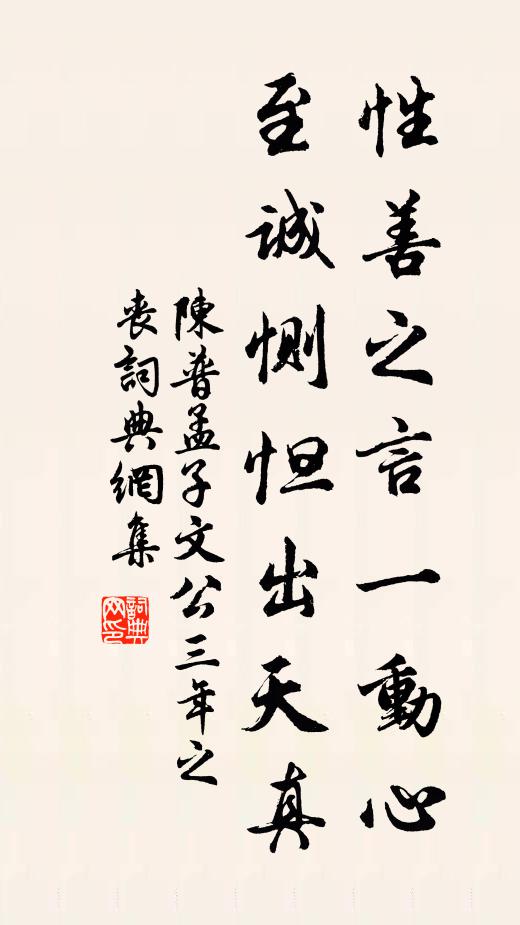 性善之言一動心
至誠惻怛出天真
陳普孟子文公三年之
喪詞典網集
詞典
网印